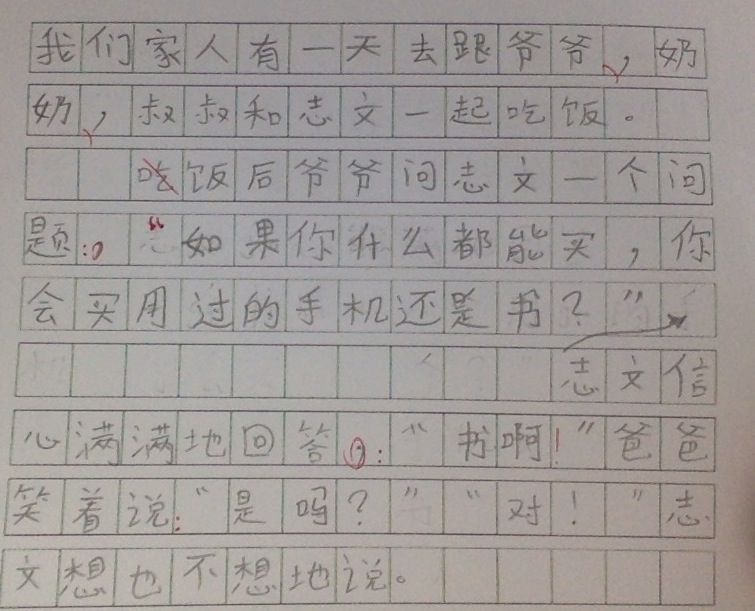 我们家人有一天去跟爷爷,奶
奶,叔叔和志文一起吃饭。
吃饭后爷爷问志文一个问
题:“如果你什么都能买,你
会买用过的手机还是书?”
志文信
心满满地回答:“书啊!”爸爸
笑着说:“是吗?”“对!”志
文想也不想地说。